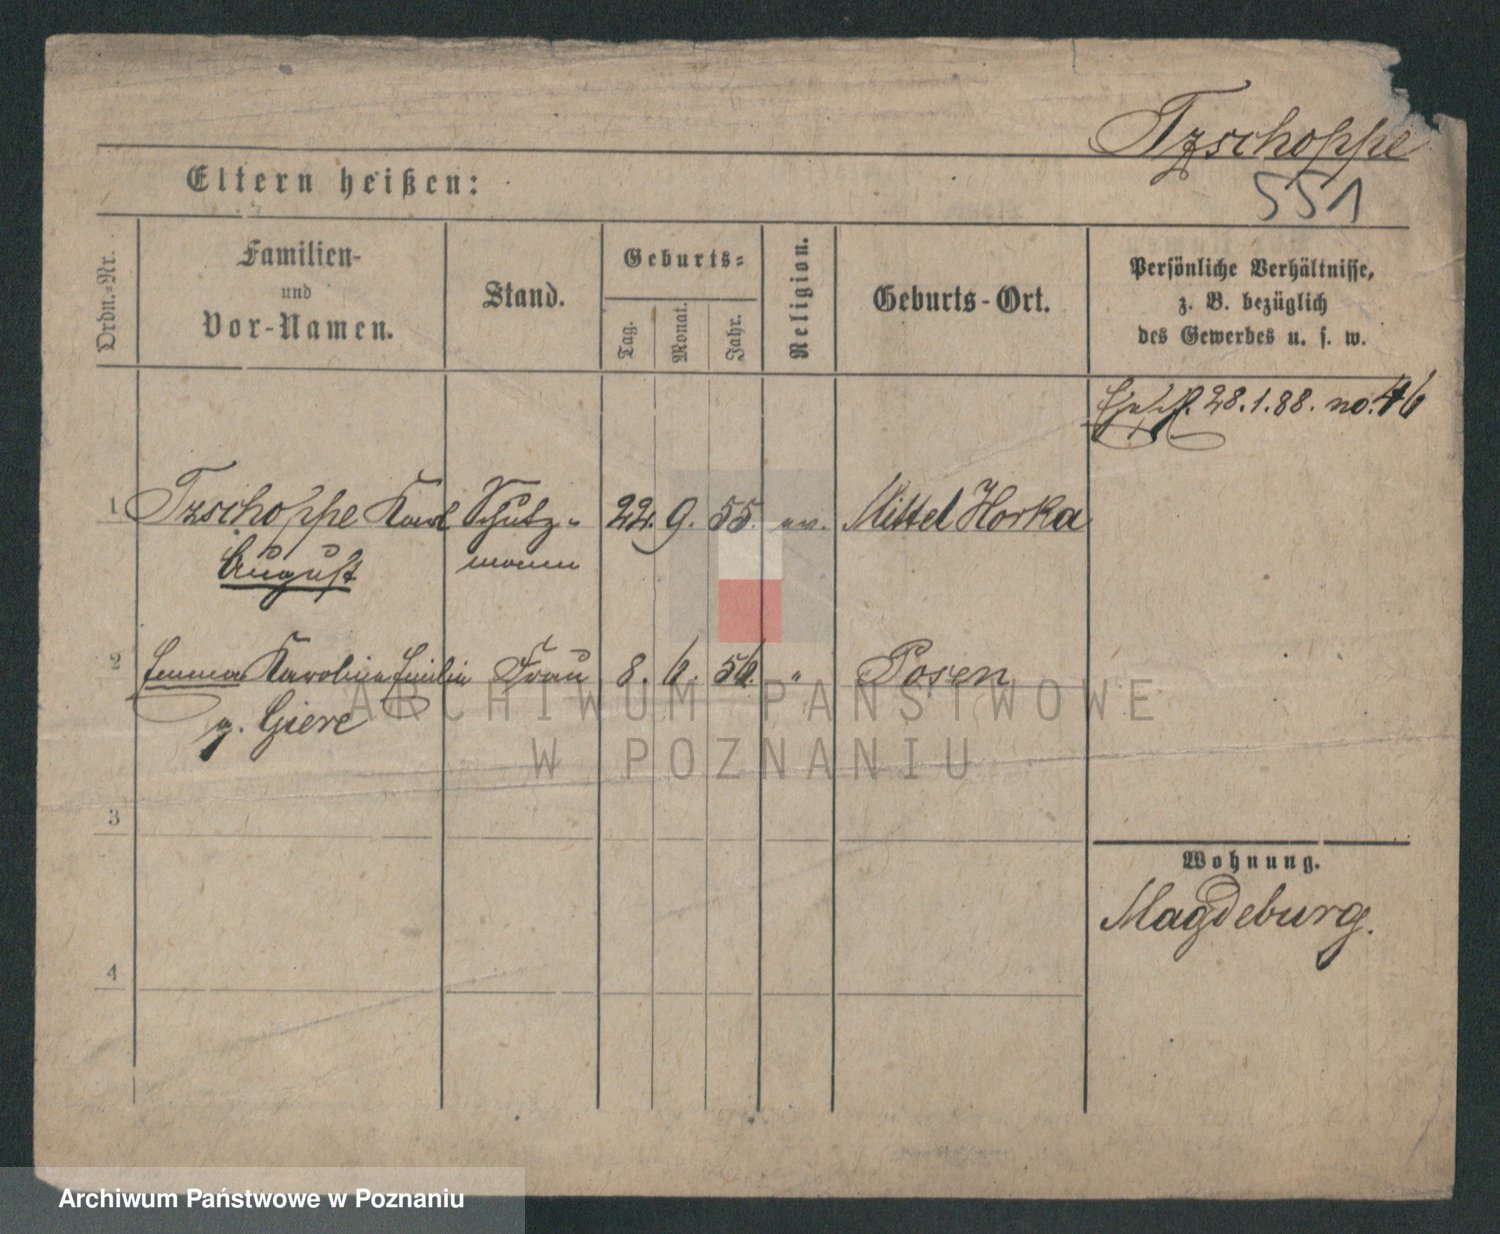 Tzschoppe
551
Eltern heißen:
Ordn.-Nr.
Familien-
und
Vor-Namen.
Stand.
Geburts-
Tag.
Monat.
Jahr.
Religion.
Geburts-Ort.
Persönliche Verhältnisse,
z. B. bezüglich
des Gewerbes u. s. w.
28.1.88. no. 46
1 Tzschoppe Karl Schutz- 22. 9. 55. ev. Mittel Horka
August mann
2 Emma Karoline Emilie Frau 8. 6. 56. " Posen
g. Giere
3
Wohnung.
Magdeburg.
4
ARCHIWUM PAŃSTWOWE
W POZNANIU
Archiwum Państwowe w Poznaniu